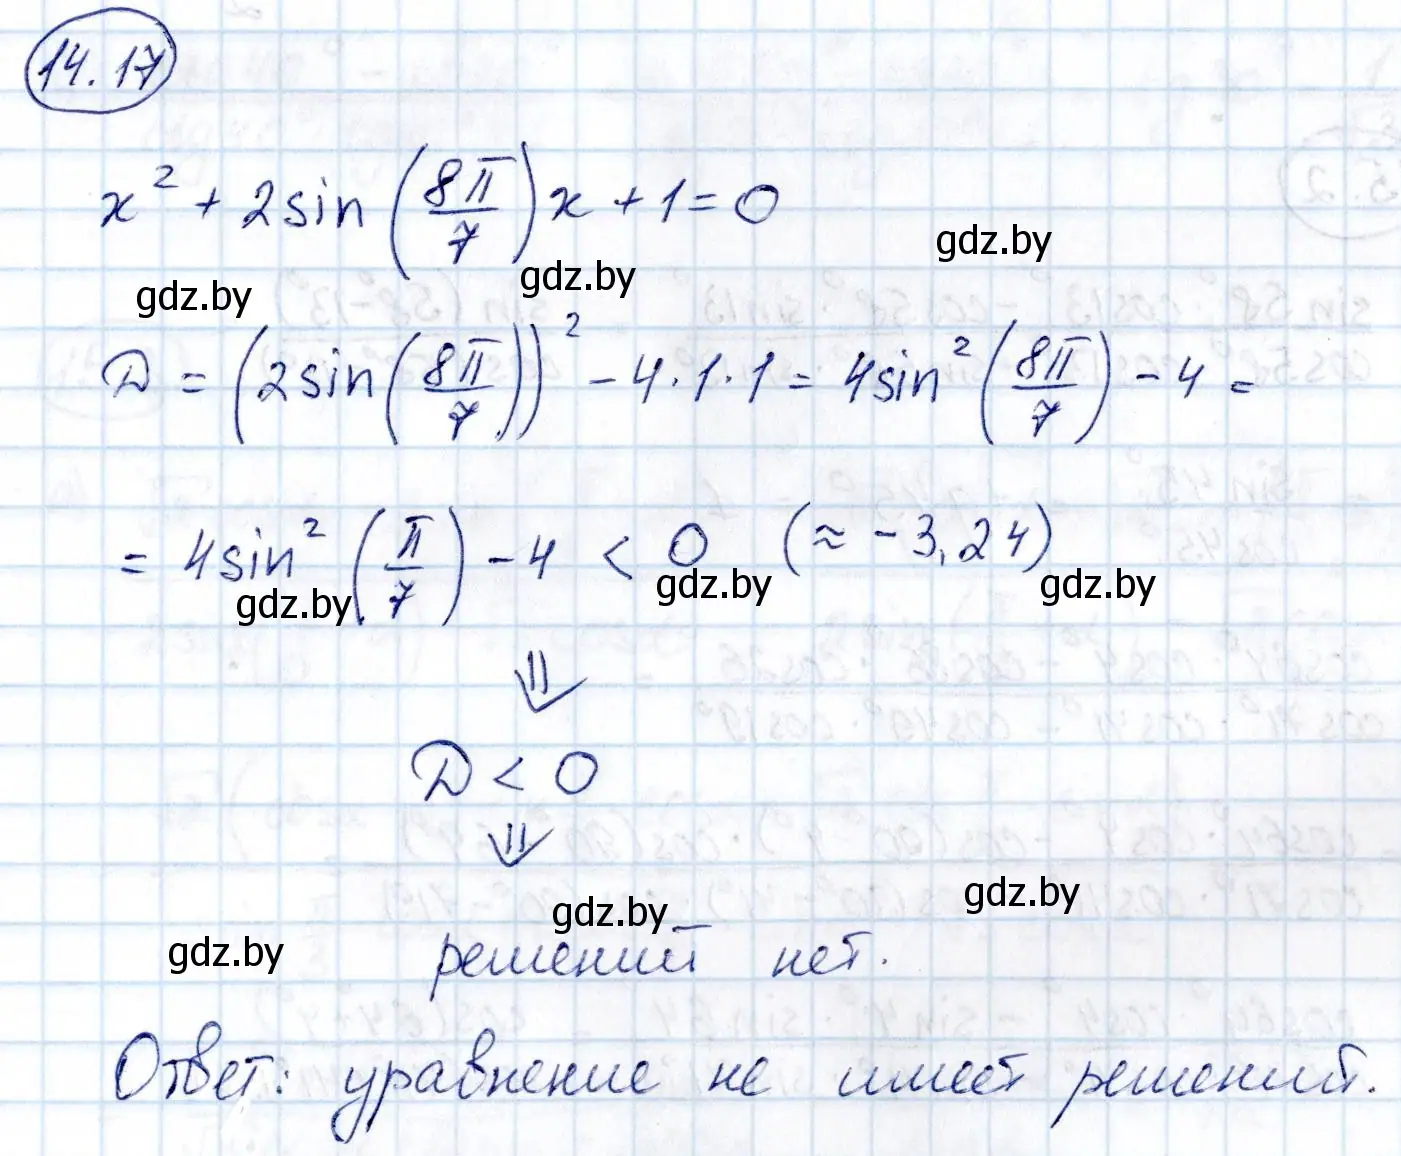 14.17
x² + 2sin(8π/7)x + 1 = 0
gdz.by gdz.by gdz.by
D = (2sin(8π/7))² − 4·1·1 = 4sin²(8π/7) − 4 =
= 4sin²(π/7) − 4 < 0 (≈ −3,24)
gdz.by gdz.by gdz.by
⇓
D < 0
⇓
gdz.by gdz.by gdz.by
решений нет.
Ответ: уравнение не имеет решений.